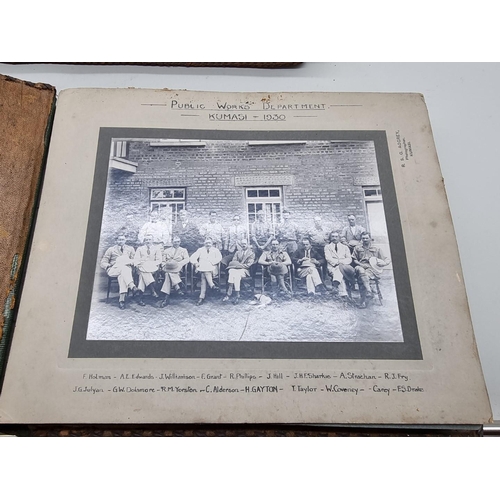 PUBLIC WORKS DEPARTMENT
KUMASI - 1930
F. Holmes - A.E. Edwards - J. Wilkinson - F. Grant - R. Phillips - J. Hall - J.H.F. Sharkie - A. Strachan - R.J. Fry
J.G. - G.W. - R.M. Yorston - C. Alderson - H. GAYTON - T. Taylor - W. Coveney - Carey - F.S. Drake